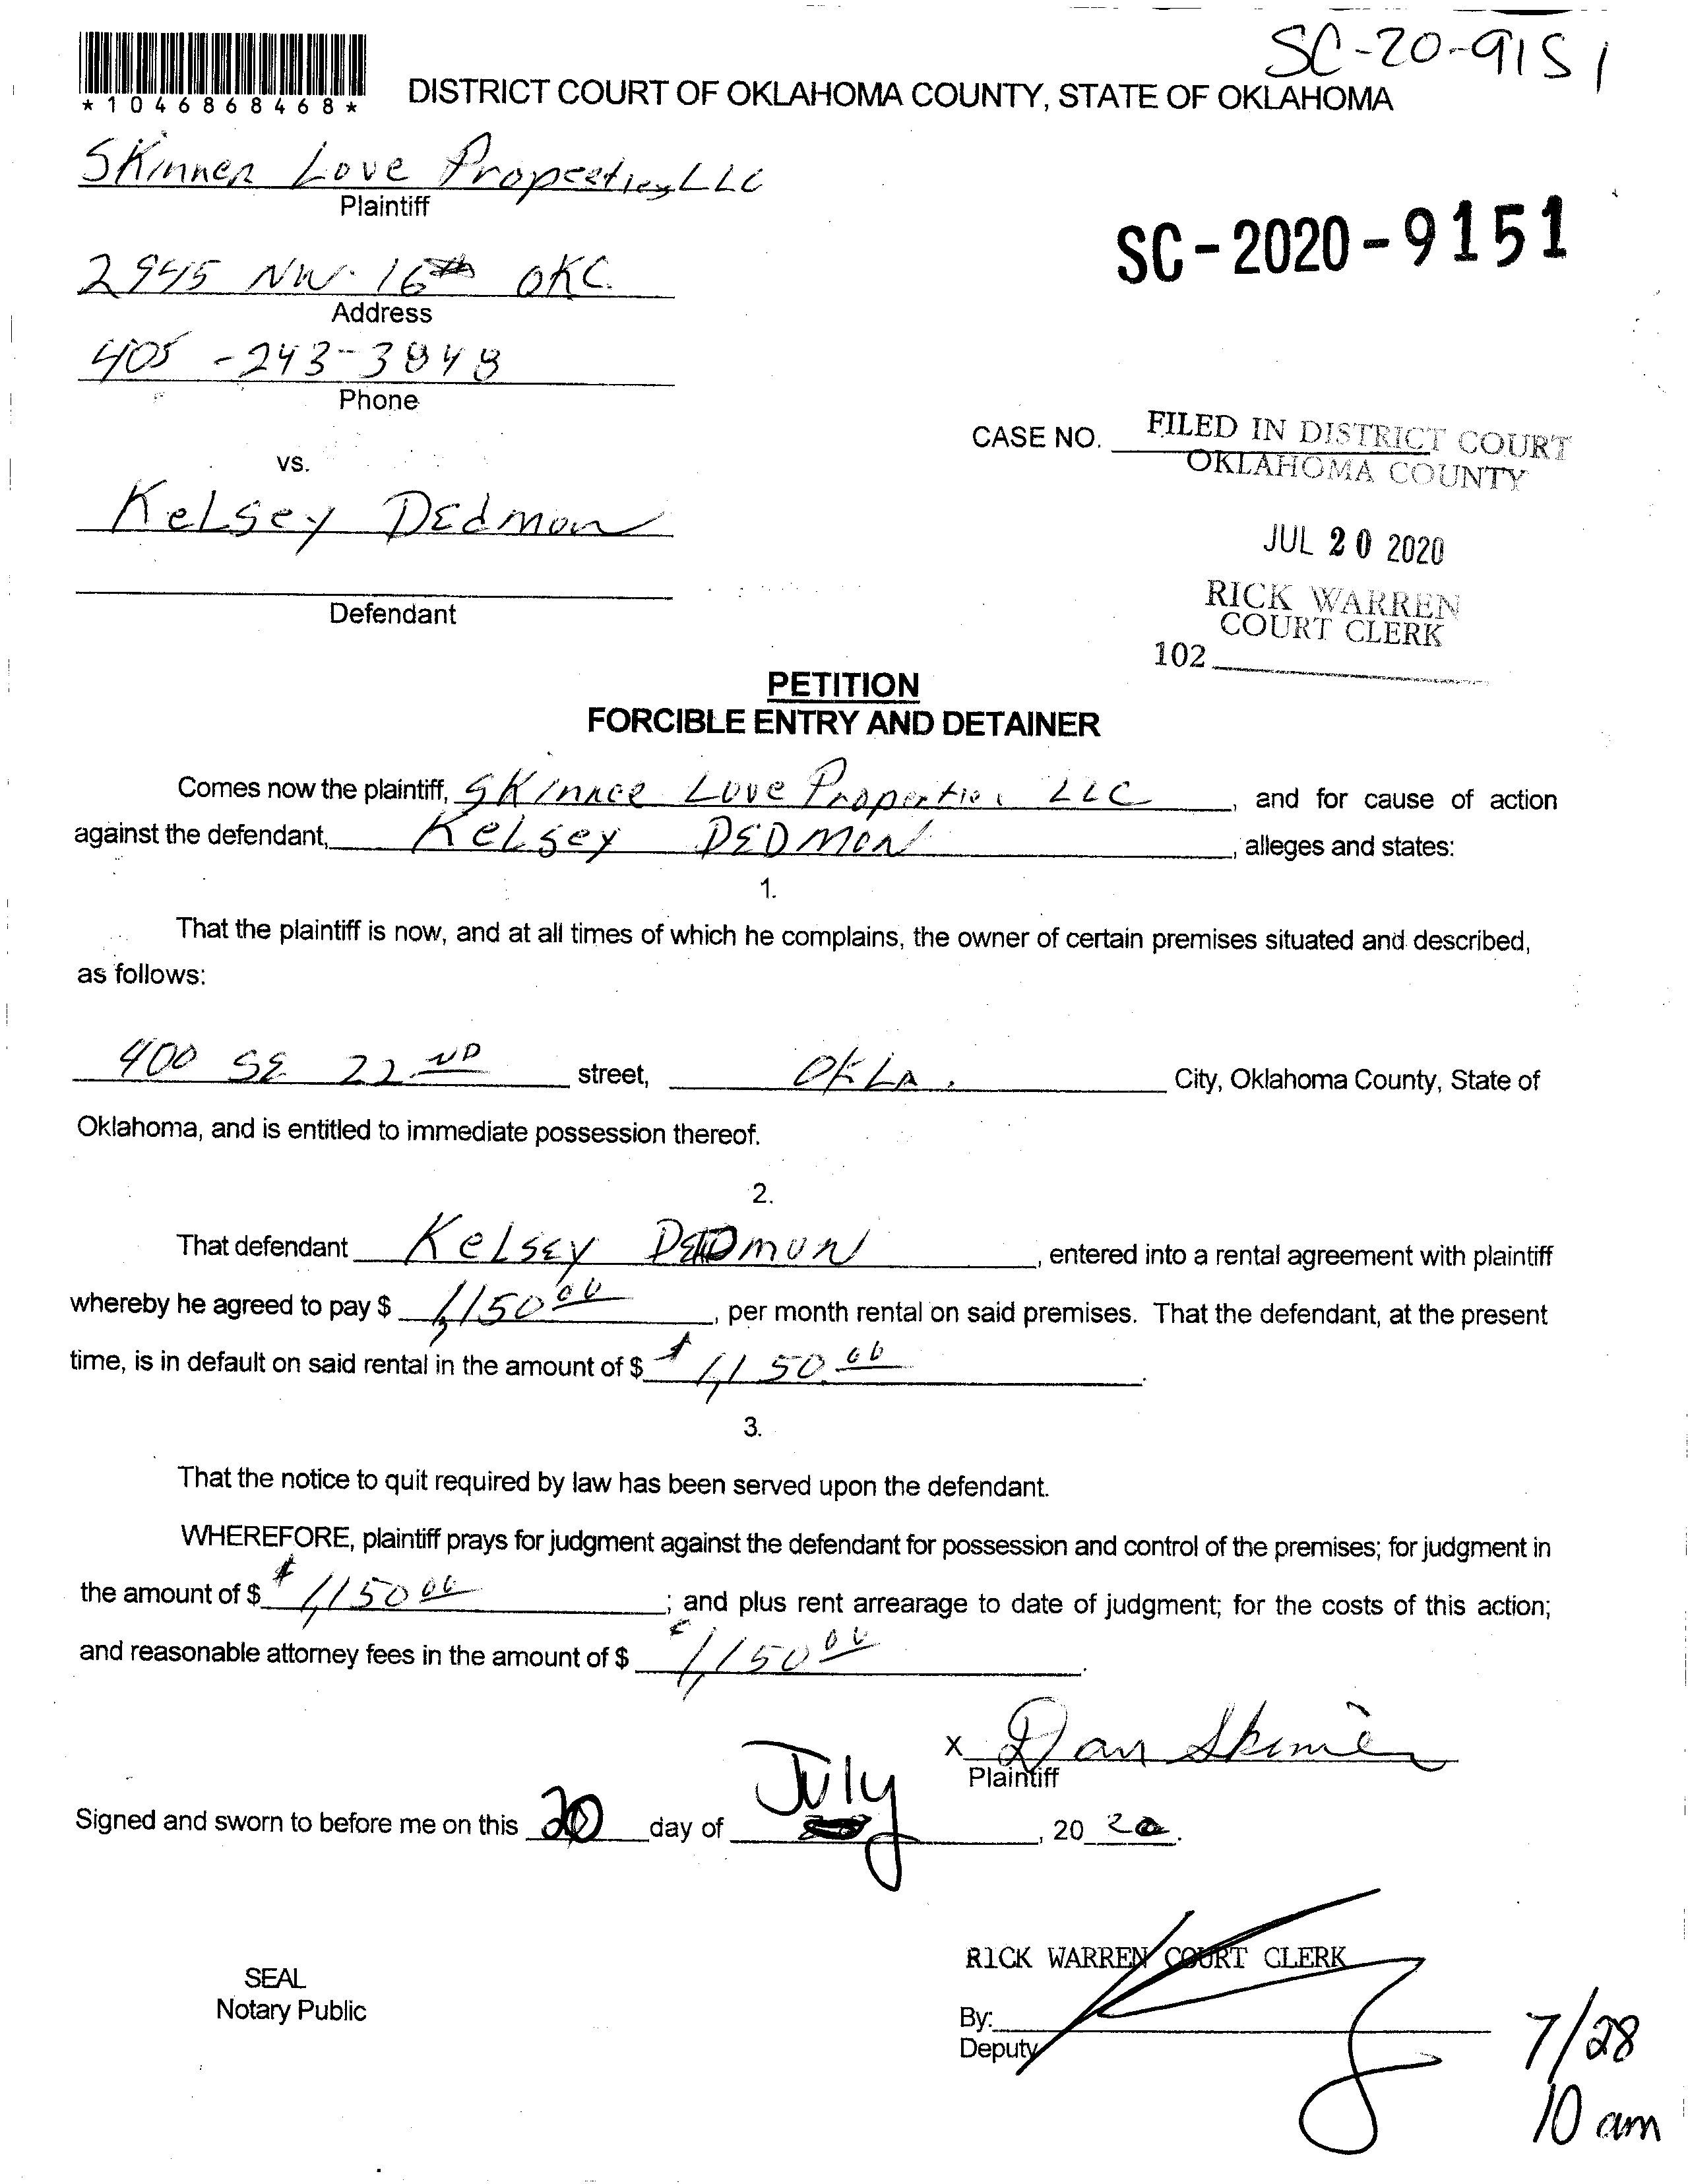 SC-20-9151
*1046868468*
DISTRICT COURT OF OKLAHOMA COUNTY, STATE OF OKLAHOMA
Skinner Love Properties, LLC
Plaintiff
SC-2020-9151
2945 NW. 16th OKC.
Address
405-243-3848
Phone
CASE NO.
FILED IN DISTRICT COURT
OKLAHOMA COUNTY
vs.
Kelsey Dedmon
JUL 20 2020
Defendant
RICK WARREN
COURT CLERK
102
PETITION
FORCIBLE ENTRY AND DETAINER
Comes now the plaintiff, Skinner Love Properties LLC, and for cause of action
against the defendant, Kelsey DEDMON, alleges and states:
1.
That the plaintiff is now, and at all times of which he complains, the owner of certain premises situated and described,
as follows:
400 SE 22ND street, OKLA. City, Oklahoma County, State of
Oklahoma, and is entitled to immediate possession thereof.
2.
That defendant Kelsey DEDMON, entered into a rental agreement with plaintiff
whereby he agreed to pay $ 1,150 00, per month rental on said premises. That the defendant, at the present
time, is in default on said rental in the amount of $ $1,150.00.
3.
That the notice to quit required by law has been served upon the defendant.
WHEREFORE, plaintiff prays for judgment against the defendant for possession and control of the premises; for judgment in
the amount of $ $1,150 00; and plus rent arrearage to date of judgment; for the costs of this action;
and reasonable attorney fees in the amount of $ $1,150 00.
x Dan Skinner
Plaintiff
Signed and sworn to before me on this 20 day of July, 20 20.
RICK WARREN COURT CLERK
SEAL
Notary Public
By:
Deputy
7/28
10 am